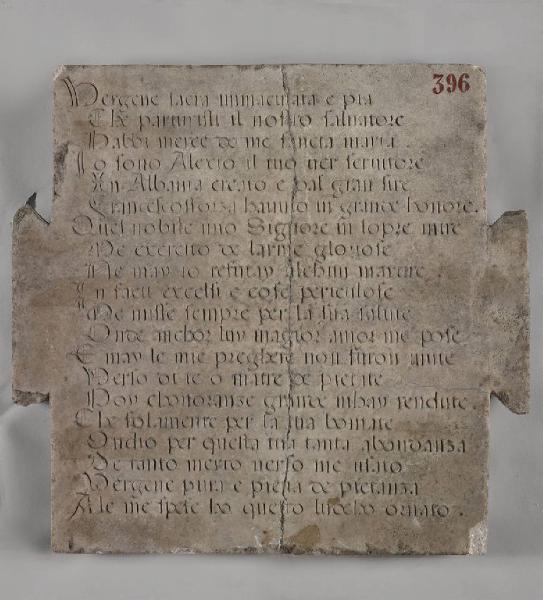 396
Vergene sacra immaculata e pia
Che parturisti il nostro salvatore
Habbi merce de me sancta maria.
Io sono Alexio il tuo ver servitore
In Albania creato e dal gran sire
Francescosforza havuto in grande honore.
Quel nobile mio Signore in sopre mire
Me exercito de larme gloriose
Ne may io refutay alchun martire
In facti excelsi e cose periculose
Me misse sempre per la sua salute
Onde in chor luy magior amor me pose
E may le mie preghere non furon mute
Verso di te o matre de pietate
Poy chonoranze grande mhay rendute.
Che solamente per la tua bontate
Ondio per questa tua tanta abondanza
De tanto merto verso me usato
Vergene pura e piena de pietanza
A le me spese ho questo ludcho ornato.